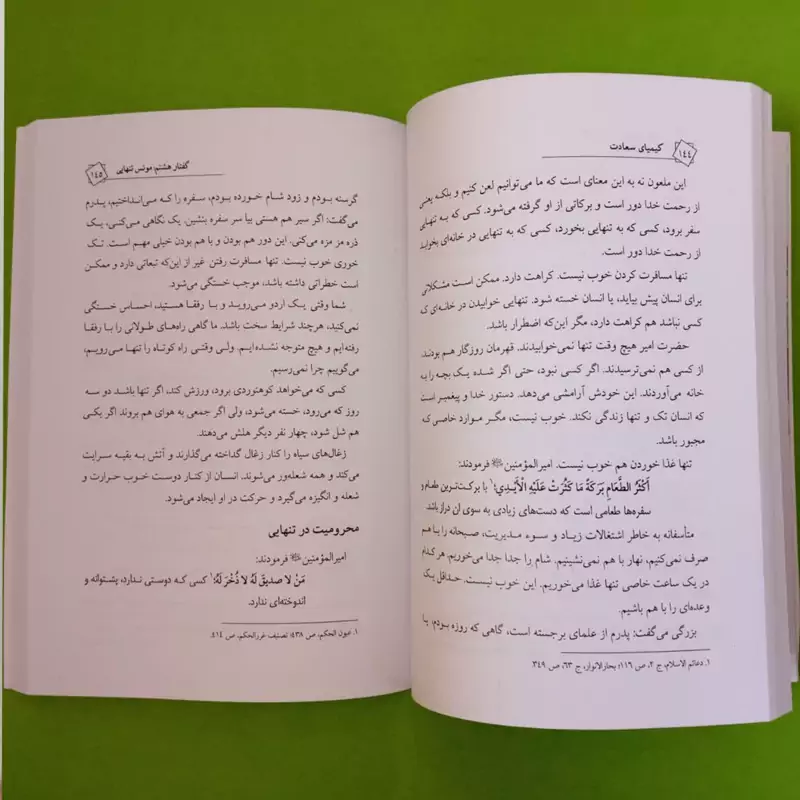 ۱۴۴
کیمیای سعادت
این ملعون نه به این معنای است که ما می‌توانیم لعن کنیم و بلکه یعنی
از رحمت خدا دور است و برکاتی از او گرفته می‌شود. کسی که به تنهایی
سفر برود، کسی که به تنهایی بخورد، کسی که به تنهایی در خانه‌ای بخوابد
از رحمت خدا دور است.
تنها مسافرت کردن خوب نیست. کراهت دارد. ممکن است مشکلاتی
برای انسان پیش بیاید، یا انسان خسته شود. تنهایی خوابیدن در خانه‌ای ک
کسی نباشد هم کراهت دارد، مگر این‌که اضطرار باشد.
حضرت امیر هیچ وقت تنها نمی‌خوابیدند. قهرمان روزگار هم بودند.
از کسی هم نمی‌ترسیدند. اگر کسی نبود، حتی اگر شده یک بچه را به
خانه می‌آوردند. این خودش آرامشی می‌دهد. دستور خدا و پیغمبر است
که انسان تک و تنها زندگی نکند. خوب نیست، مگر موارد خاصی ک
مجبور باشد.
تنها غذا خوردن هم خوب نیست. امیرالمؤمنین فرمودند:
أَکْثَرُ الطَّعَامِ بَرَکَةً مَا کَثُرَتْ عَلَیْهِ الْأَیْدِي؛۱ با برکت‌ترین طعام و
سفره‌ها طعامی است که دست‌های زیادی به سوی آن دراز باشد.
متأسفانه به خاطر اشتغالات زیاد و سوء مدیریت، صبحانه را با هم
صرف نمی‌کنیم، نهار با هم نمی‌نشینیم. شام را جدا جدا می‌خوریم. هر کدام
در یک ساعت خاصی تنها غذا می‌خوریم. این خوب نیست. حداقل یک
وعده‌ای را با هم باشیم.
بزرگی می‌گفت: پدرم از علمای برجسته است، گاهی که روزه بودم، یا
۱. دعائم الاسلام، ج ۲، ص ۱۱۶؛ بحارالانوار، ج ۶۳، ص ۳۴۹.
گفتار هشتم: مونس تنهایی
۱۴۵
گرسته بودم و زود شام خورده بودم، سفره را که می‌انداختیم، پدرم
می‌گفت: اگر سیر هم هستی بیا سر سفره بنشین. یک نگاهی می‌کنی، یک
ذره مز مزه می‌کنی. این دور هم بودن و با هم بودن خیلی مهم است. تک
خوری خوب نیست. تنها مسافرت رفتن غیر از این‌که تبعاتی دارد و ممکن
است خطراتی داشته باشد، موجب خستگی می‌شود.
شما وقتی یک اردو می‌روید و با رفقا هستید، احساس خستگی
نمی‌کنید، هرچند شرایط سخت باشد. ما گاهی راه‌های طولانی را با رفقا
رفته‌ایم و هیچ متوجه نشده‌ایم. ولی وقتی راه کوتاه را تنها می‌رویم،
می‌گوییم چرا نمی‌رسیم.
کسی که می‌خواهد کوهنوردی برود، ورزش کند، اگر تنها باشد دو سه
روز که می‌رود، خسته می‌شود، ولی اگر جمعی به هوای هم بروند اگر یکی
هم شل شود، چهار نفر دیگر هلش می‌دهند.
زغال‌های سیاه را کنار زغال گداخته می‌گذارند و آتش به بقیه سرایت
می‌کند و همه شعله‌ور می‌شوند. انسان از کنار دوست خوب حرارت و
شعله و انگیزه می‌گیرد و حرکت در او ایجاد می‌شود.
محرومیت در تنهایی
امیرالمؤمنین فرمودند:
مَنْ لا صدیقَ لَهُ لا ذُخْرَ لَهُ؛۱ کسی که دوستی ندارد، پشتوانه و
اندوخته‌ای ندارد.
۱. عیون الحکم، ص ۴۳۸؛ تصنیف غررالحکم، ص ۴۱۴.